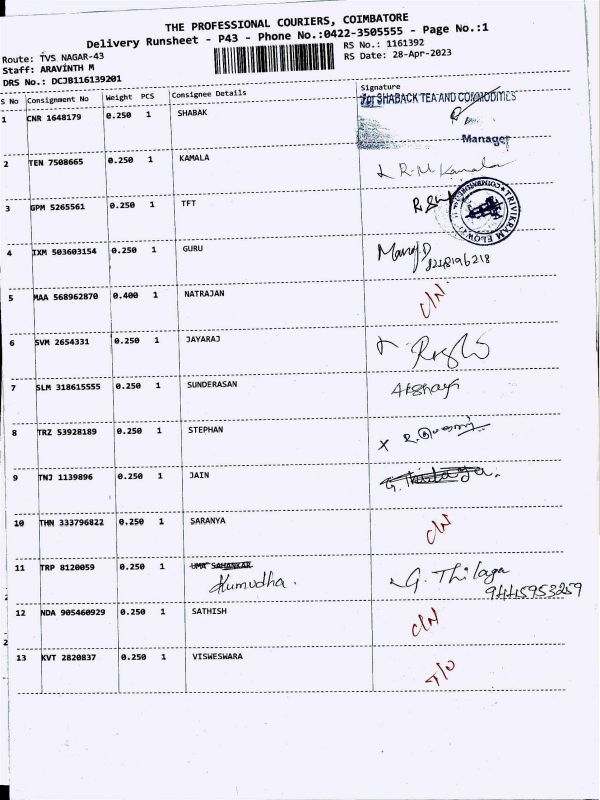 THE PROFESSIONAL COURIERS, COIMBATORE
Delivery Runsheet - P43 - Phone No.:0422-3505555 - Page No.:1
Route: TVS NAGAR-43
RS No.: 1161392
Staff: ARAVINTH M
RS Date: 28-Apr-2023
DRS No.: DCJB116139201
S No Consignment No Weight PCS Consignee Details Signature
For SHABACK TEA AND COMMODITIES
1 CNR 1648179 0.250 1 SHABAK
Manager
2 TEN 7508665 0.250 1 KAMALA R.M Kamala
3 GPM 5265561 0.250 1 TFT
4 IXM 503603154 0.250 1 GURU Manoj.D
8248196218
5 MAA 568962870 0.400 1 NATRAJAN C/N
6 SVM 2654331 0.250 1 JAYARAJ
7 SLM 318615555 0.250 1 SUNDERASAN Akshaya
8 TRZ 53928189 0.250 1 STEPHAN X
9 TNJ 1139896 0.250 1 JAIN G. Thilaga.
10 THN 333796822 0.250 1 SARANYA C/N
11 TRP 8120059 0.250 1 UMA SAHANKAR G. Thilaga
Kumudha. 9445953259
12 NDA 905460929 0.250 1 SATHISH C/N
13 KVT 2820837 0.250 1 VISWESWARA T/O